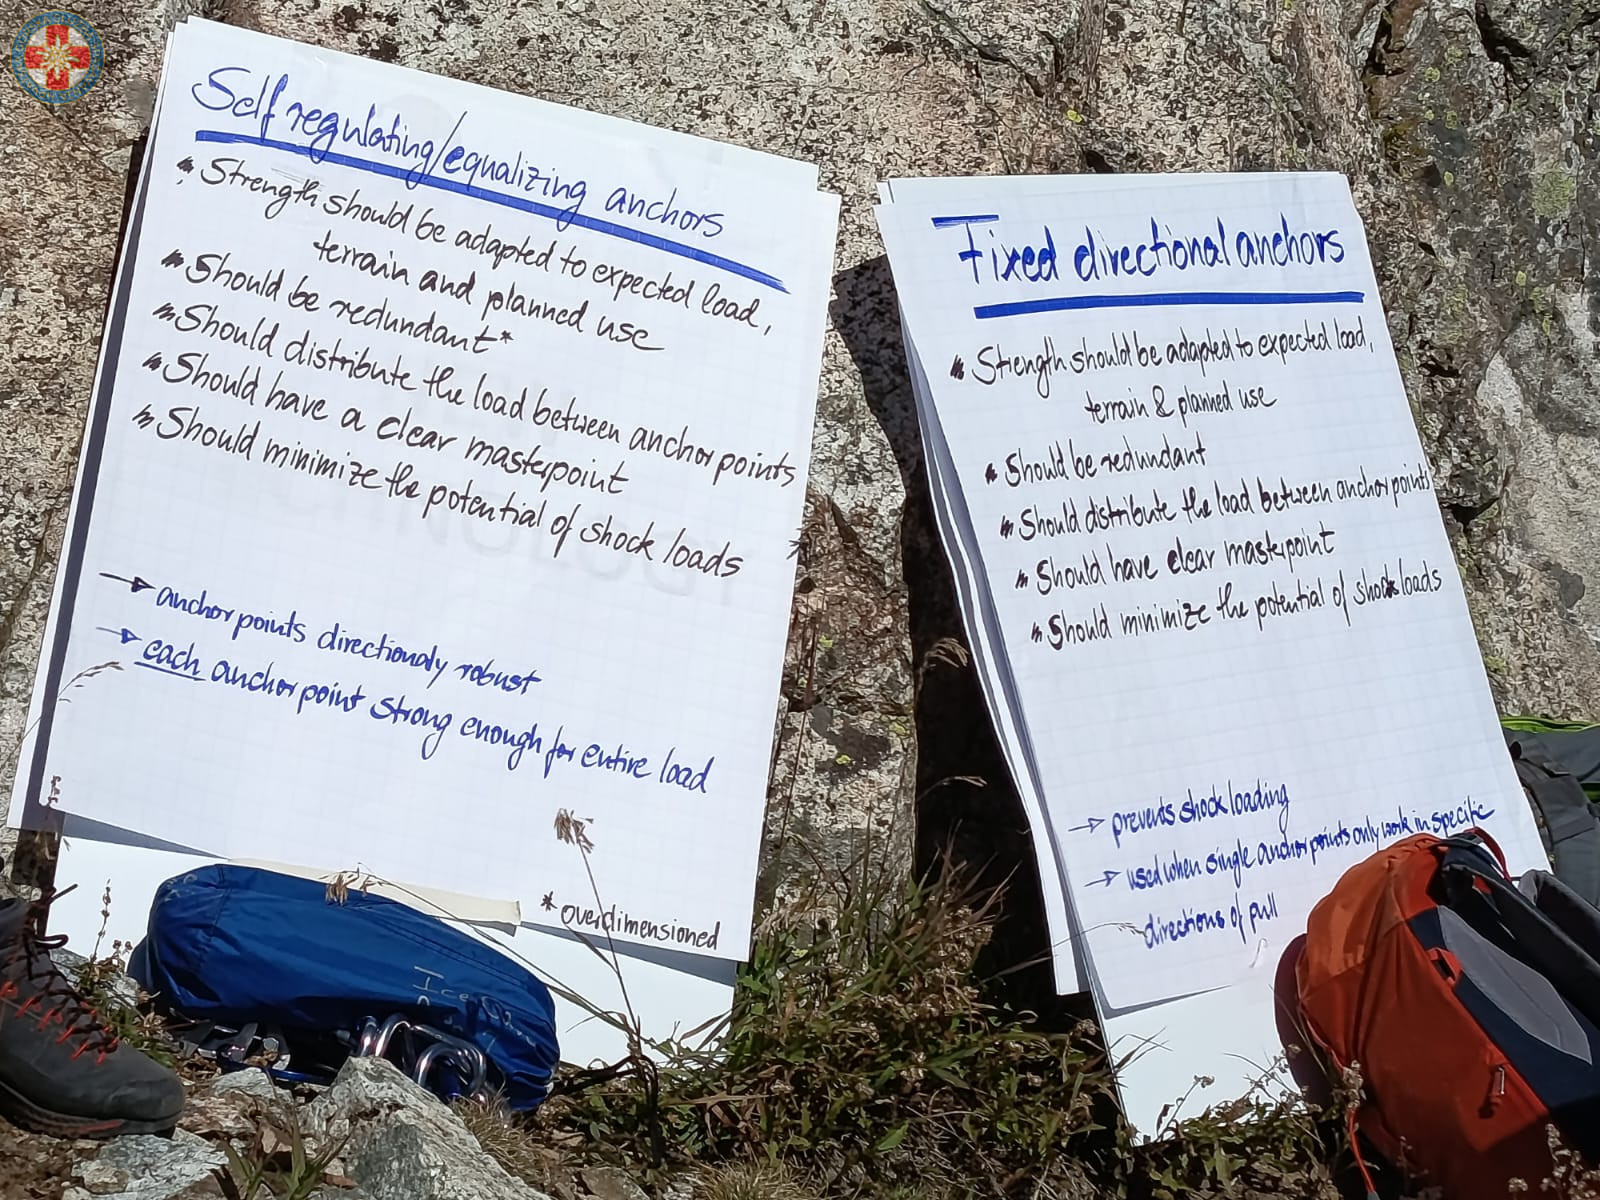 Self regulating/equalizing anchors
Strength should be adapted to expected load,
terrain and planned use
Should be redundant*
Should distribute the load between anchor points
Should have a clear masterpoint
Should minimize the potential of shock loads
→ anchor points directionaly robust
→ each anchor point strong enough for entire load
* overdimensioned
Ice
Fixed directional anchors
Strength should be adapted to expected load,
terrain & planned use
Should be redundant
Should distribute the load between anchor points
Should have clear masterpoint
Should minimize the potential of shock loads
→ prevents shock loading
→ used when single anchor points only work in specific
directions of pull